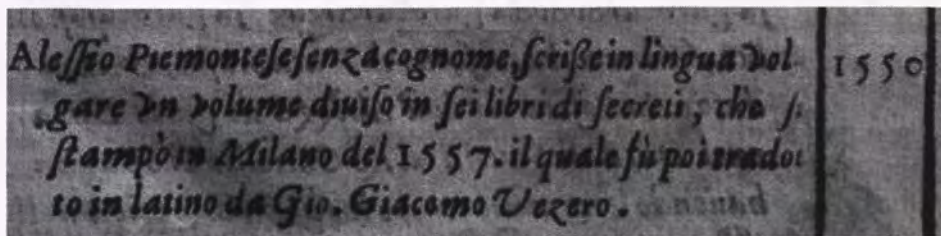 Alessio Piemontese senza cognome, scriße in lingua vol- 1550
gare vn volume diuiso in sei libri di secreti, che si
stampò in Milano del 1557. il quale fù poi tradot
to in latino da Gio. Giacomo Vezero.